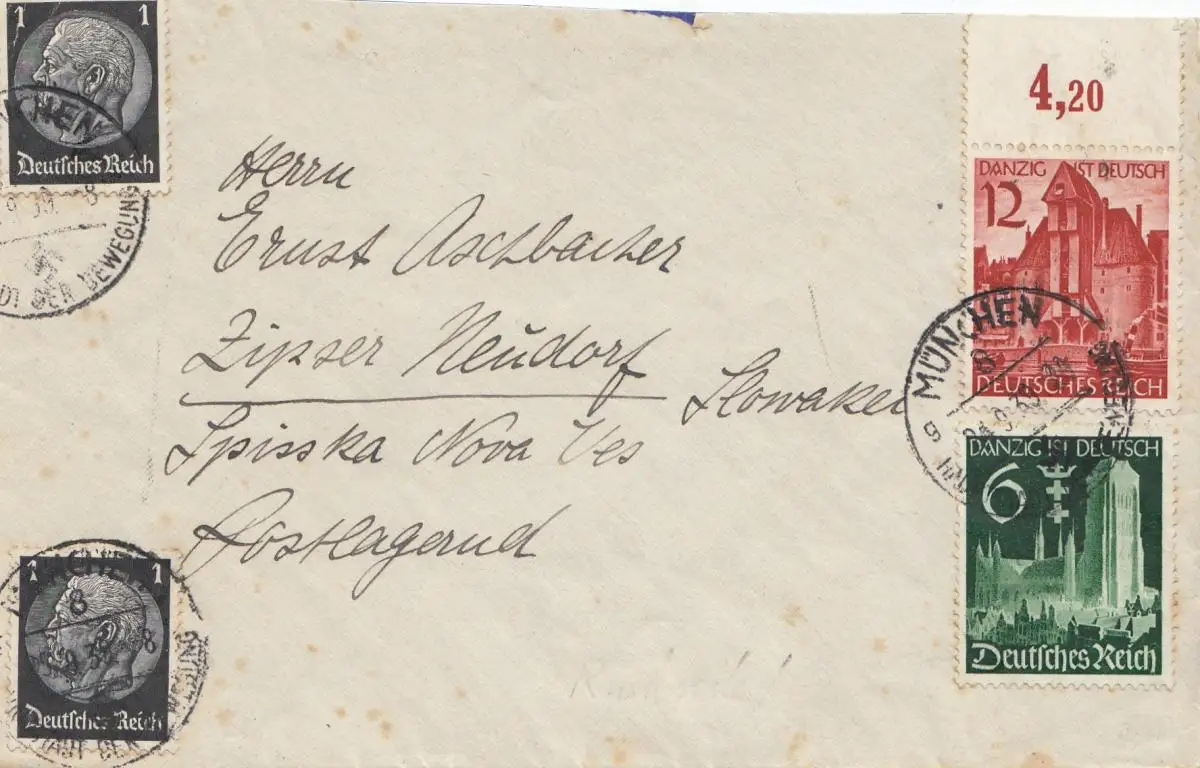 1 1
Deutsches Reich
DER BEWEGUNG
4,20
DANZIG IST DEUTSCH
12
DEUTSCHES REICH
MÜNCHEN
DANZIG IST DEUTSCH
6
Deutsches Reich
Herrn
Ernst Aschbacher
Zipser Neudorf
Slowakei
Spisska Nova Ves
Postlagernd
1 1
8
8
Deutsches Reich